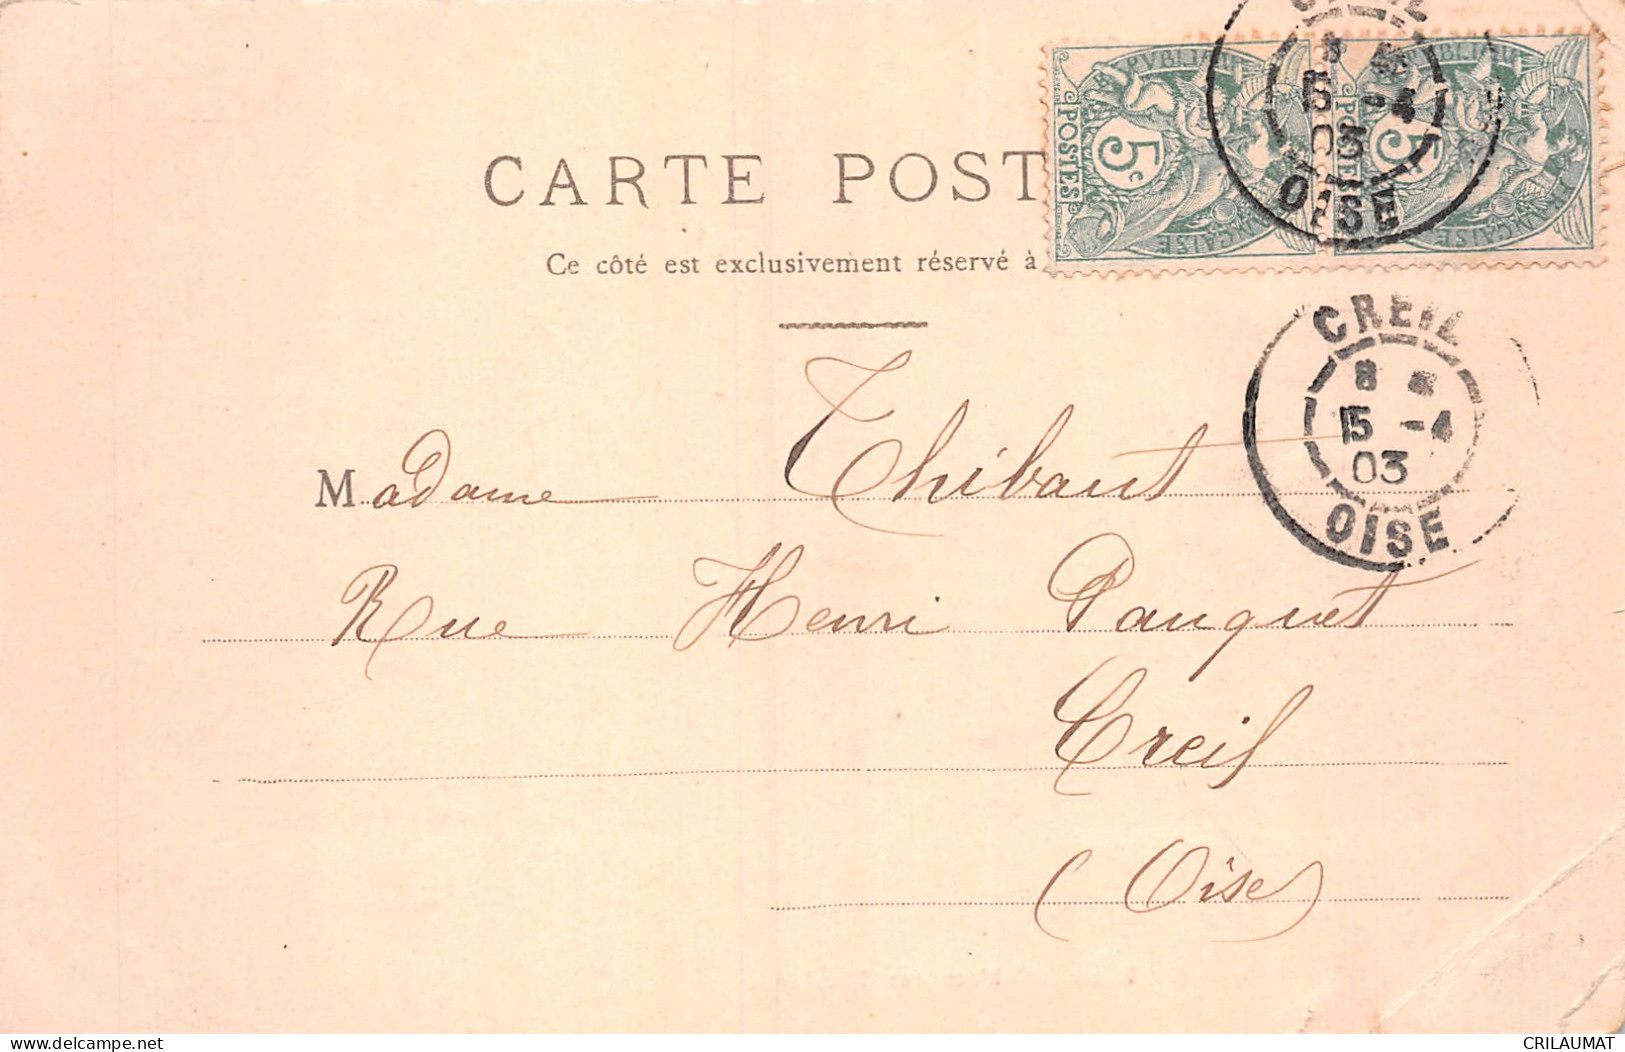 CARTE POST
Ce côté est exclusivement réservé à
RÉPUBLIQUE FRANÇAISE
POSTES
5c
POSTES
5
CREIL
15 -4
03
OISE
CREIL
8
15 -4
03
OISE
Madame Thibaut
Rue Henri Pauquet
Creil
(Oise)
www.delcampe.net
CRILAUMAT